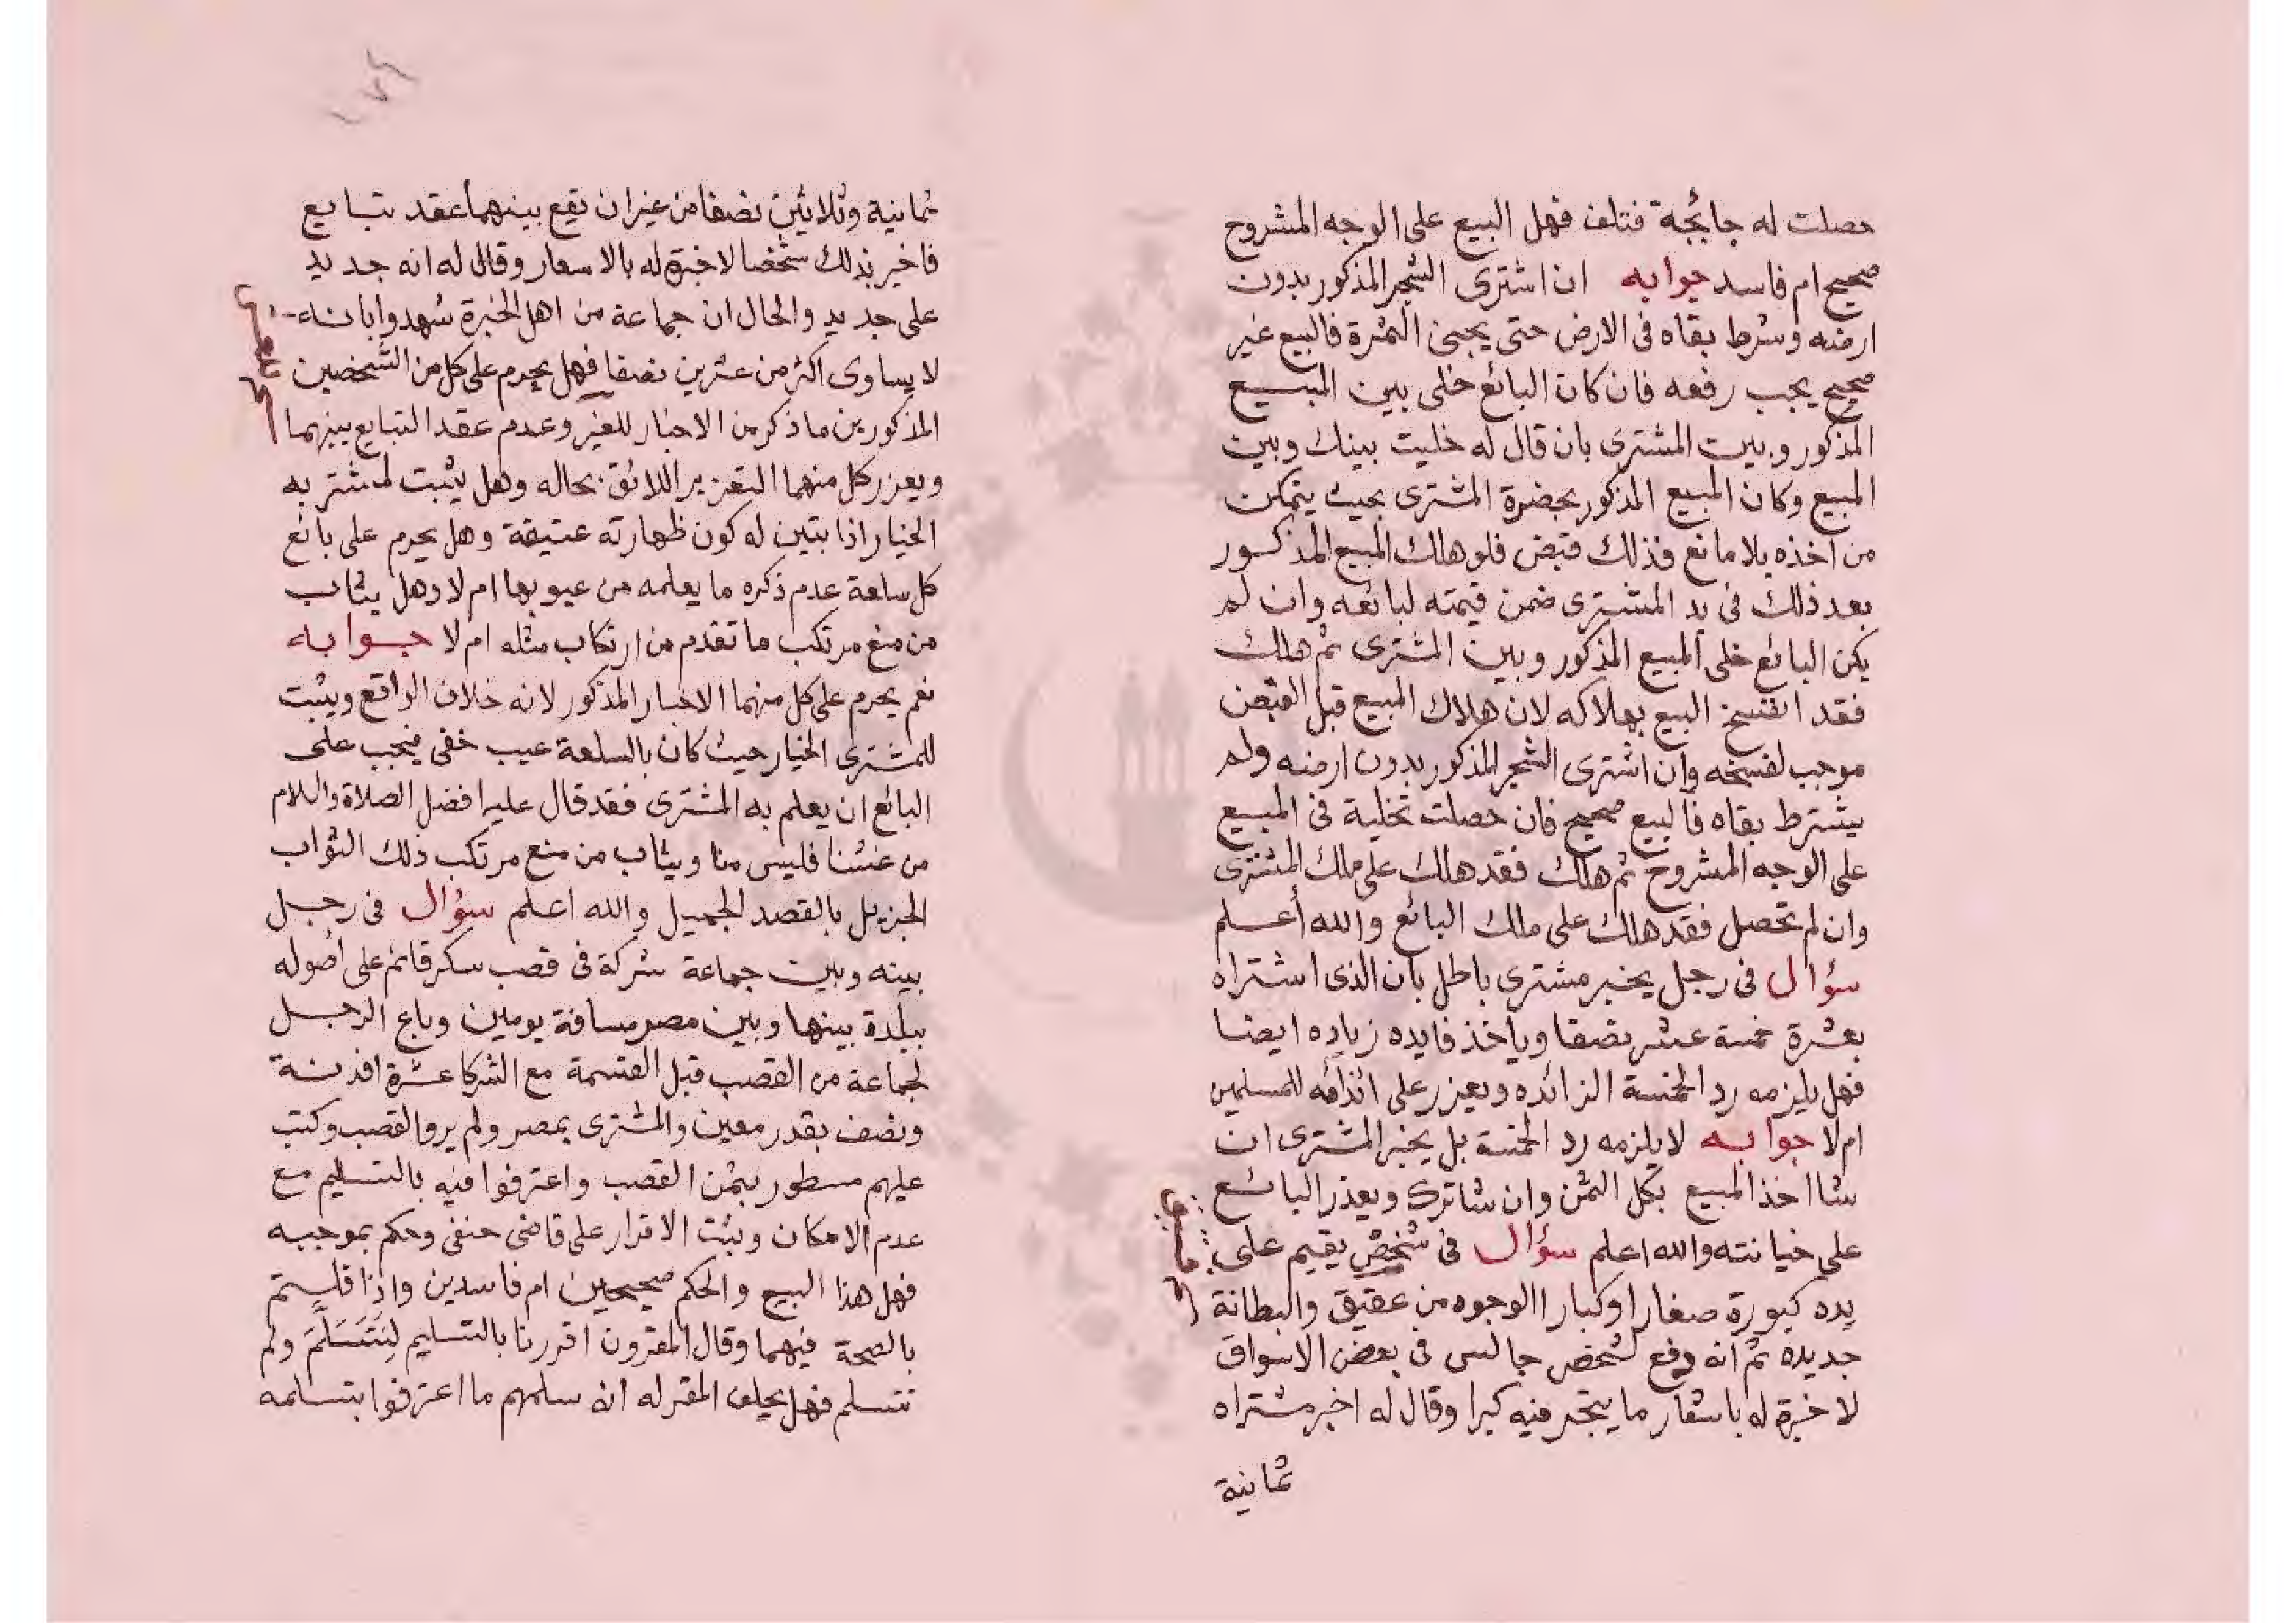 حصلت له جايحة فتلف فهل البيع على الوجه المشروح
صحيح ام فاسد جوابه ان اشترى الشجر المذكور بدون
ارضه وشرط بقاه فى الارض حتى يجبى الثمرة فالبيع غير
صحيح يجب رفعه فان كان البائع خلى بين المبيع
المذكور وبين المشترى بان قال له خليت بينك وبين
المبيع وكان المبيع المذكور بحضرة المشترى بحيث يتمكن
من اخذه بلا مانع فذلك قبض فلو هلك المبيع المذكور
بعد ذلك فى يد المشترى ضمن قيمته لبائعه وان لم
يكن البائع خلى المبيع المذكور وبين المشترى ثم هلك
فقد انفسخ البيع بهلاكه لان هلاك المبيع قبل القبض
موجب لفسخه وان اشترى الشجر المذكور بدون ارضه ولم
يشترط بقاه فالبيع صحيح فان حصلت تخلية فى المبيع
على الوجه المشروح ثم هلك فقد هلك على ملك المشترى
وان لم تحصل فقد هلك على ملك البائع والله أعلم
سؤال فى رجل يخبر مشترى باطل بان الذى اشتراه
بعشرة خمسة عشر نصفا وياخذ فايده زياده ايضا
فهل يلزمه رد الخمسة الزائده ويعزر على اذائه للمسلمين
ام لا جوابه لا يلزمه رد الخمسة بل يخير المشترى ان
شا اخذ المبيع بكل الثمن وان شا ترك ويعذر البائع
على خيانته والله اعلم سؤال فى شخص يقيم على
يده كبورة صغارا وكبارا الوجوه من عقيق والبطانة
جديده ثم انه دفع لشخص جالس فى بعض الاسواق
لا خبرة له باسعار ما يتجر فيه كبرا وقال له اخبر مشتراه
ثمانية
ثمانية وثلاثين نصفا من غير ان يقع بينهما عقد تبايع
فاخبر بذلك شخصا لا خبرة له بالاسعار وقال له انه جديد
على جديد والحال ان جماعة من اهل الخبرة شهدوا بانه
لا يساوى اكثر من عشرين نصفا فهل يحرم على كل من الشخصين
المذكورين ما ذكر من الاخبار للغير وعدم عقد التبايع بينهما
ويعزر كل منهما التعزير اللائق بحاله وهل يثبت لمشتريه
الخيار اذا تبين له كون ظهارته عتيقة وهل يحرم على بائع
كل سلعة عدم ذكره ما يعلمه من عيوبها ام لا وهل يثاب
من منع مرتكب ما تقدم من ارتكاب مثله ام لا جوابه
نعم يحرم على كل منهما الاخبار المذكور لانه خلاف الواقع ويثبت
للمشترى الخيار حيث كان بالسلعة عيب خفى فيجب على
البائع ان يعلم به المشترى فقد قال عليه افضل الصلاة والسلام
من غشنا فليس منا ويثاب من منع مرتكب ذلك الثواب
الجزيل بالقصد الجميل والله اعلم سؤال فى رجل
بينه وبين جماعة شركة فى قصب سكر قائم على اصوله
ببلدة بينها وبين مصر مسافة يومين وباع الرجل
لجماعة من القصب قبل القسمة مع الشركا عشرة افدنة
ونصف بقدر معين والمشترى بمصر ولم يروا القصب وكتب
عليهم مسطور بثمن القصب واعترفوا فيه بالتسليم مع
عدم الامكان وثبت الاقرار على قاضى حنفى وحكم بموجبه
فهل هذا البيع والحكم صحيحين ام فاسدين واذا قلتم
بالصحة فيهما وقال المقرون اقررنا بالتسليم لِنَتَسَلَّمَ ولم
نتسلم فهل يحلف المقر له انه سلمهم ما اعترفوا بتسلمه